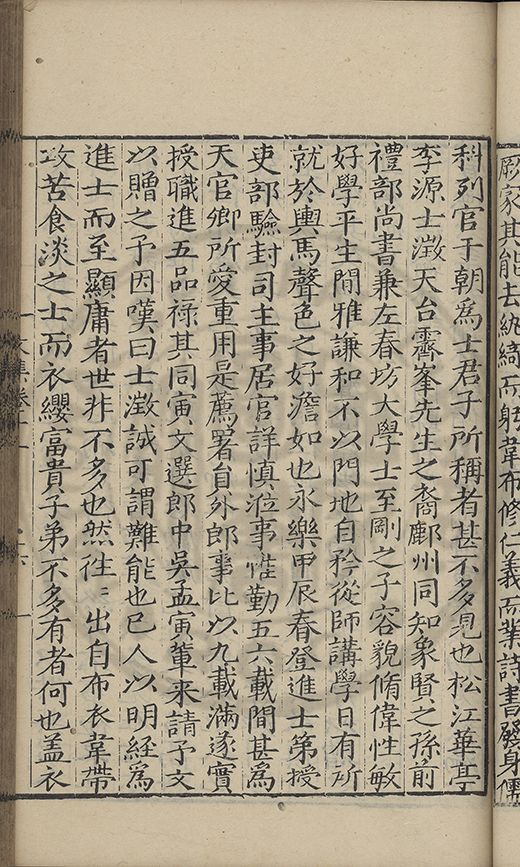 厥家其能去紈綺而躬韋布修仁義而業詩書發身儒
科列官于朝爲士君子所稱者甚不多見也松江華亭
李源士澂天台霽峯先生之裔鄜州同知象賢之孫前
禮部尚書兼左春坊大學士至剛之子容貌脩偉性敏
好學平生閒雅謙和不以門地自矜從師講學日有所
就於輿馬聲色之好澹如也永樂甲辰春登進士第授
吏部驗封司主事居官詳慎涖事惟勤五六載間甚爲
天官卿所愛重用是薦署員外郎事比以九載滿遂實
授職進五品祿其同寅文選郎中吳孟寅軰来請予文
以贈之予因嘆曰士澂誠可謂難能也已人以明經爲
進士而至顯庸者世非不多也然徃〻出自布衣韋帶
攻苦食淡之士而衣纓富貴子弟不多有者何也盖衣
文集卷十一